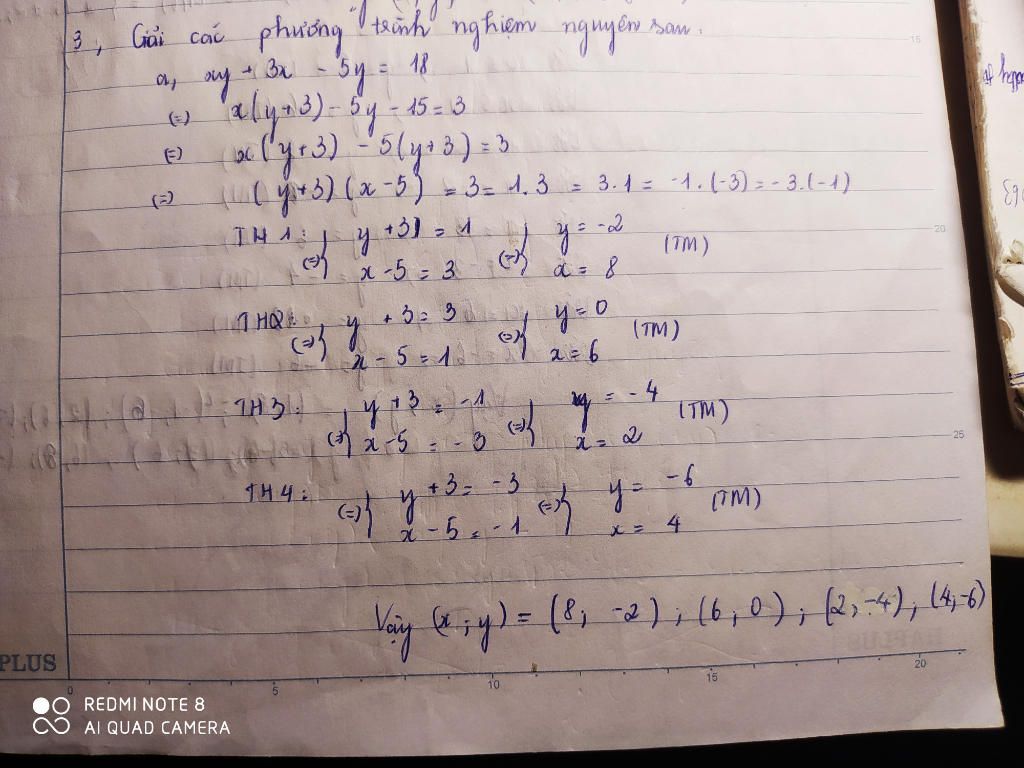 3, Giải các phương trình nghiệm nguyên sau.
a, xy + 3x - 5y = 18
(=) x(y+3) - 5y - 15 = 3
(=) x(y+3) - 5(y+3) = 3
(=) (y+3)(x-5) = 3 = 1.3 = 3.1 = -1.(-3) = -3.(-1)
TH1: y+3 = 1 (=) y = -2 (TM)
(=) x-5 = 3 x = 8
TH2: y+3 = 3 (=) y = 0 (TM)
(=) x-5 = 1 x = 6
TH3: y+3 = -1 (=) y = -4 (TM)
(=) x-5 = -3 x = 2
TH4: y+3 = -3 (=) y = -6 (TM)
(=) x-5 = -1 x = 4
Vậy (x;y) = (8; -2); (6; 0); (2; -4); (4; -6)
15
20
25
PLUS
0 5 10 15 20
REDMI NOTE 8
AI QUAD CAMERA